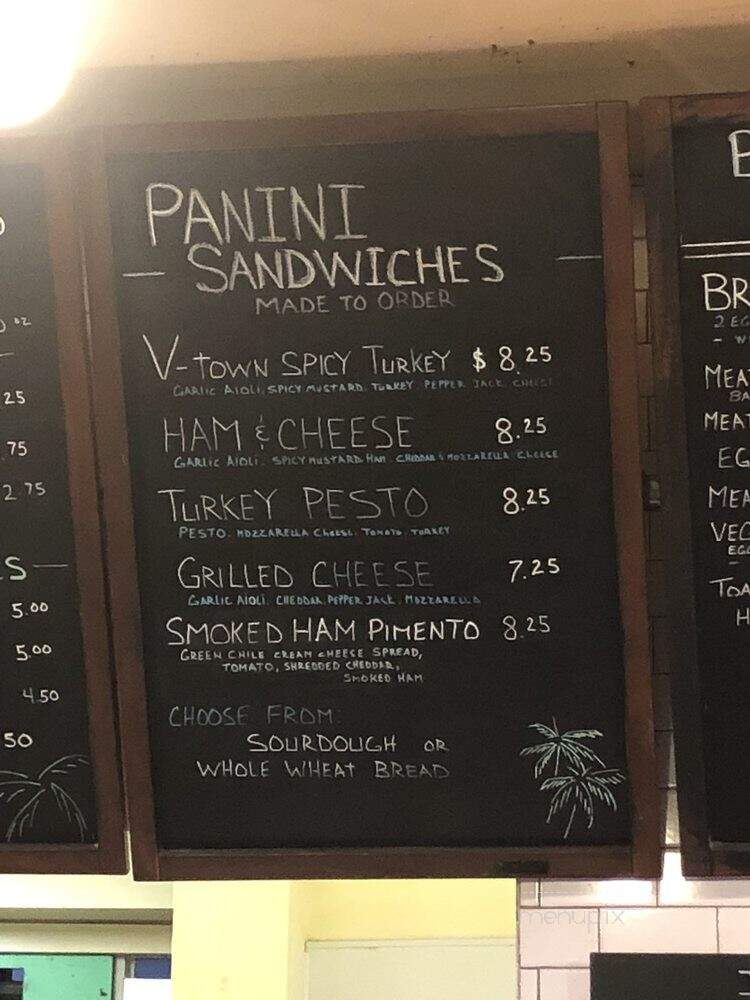 PANINI
SANDWICHES
MADE TO ORDER
V-TOWN SPICY TURKEY $ 8.25
GARLIC AIOLI, SPICY MUSTARD, TURKEY PEPPER JACK CHEESE
HAM & CHEESE 8.25
GARLIC AIOLI. SPICY MUSTARD HAM CHEDDAR & MOZZARELLA CHEESE
TURKEY PESTO 8.25
PESTO. MOZZARELLA CHEESE. TOMATO. TURKEY
GRILLED CHEESE 7.25
GARLIC AIOLI. CHEDDAR, PEPPER JACK, MOZZARELLA
SMOKED HAM PIMENTO 8.25
GREEN CHILE CREAM CHEESE SPREAD,
TOMATO, SHREDDED CHEDDAR,
SMOKED HAM
CHOOSE FROM:
SOURDOUGH OR
WHOLE WHEAT BREAD
oz
25
75
2 75
S
5.00
5.00
4.50
50
BR
2 EG
- W
MEA
BA
MEAT
EG
MEA
VEG
EGG
TOA
H
menupix